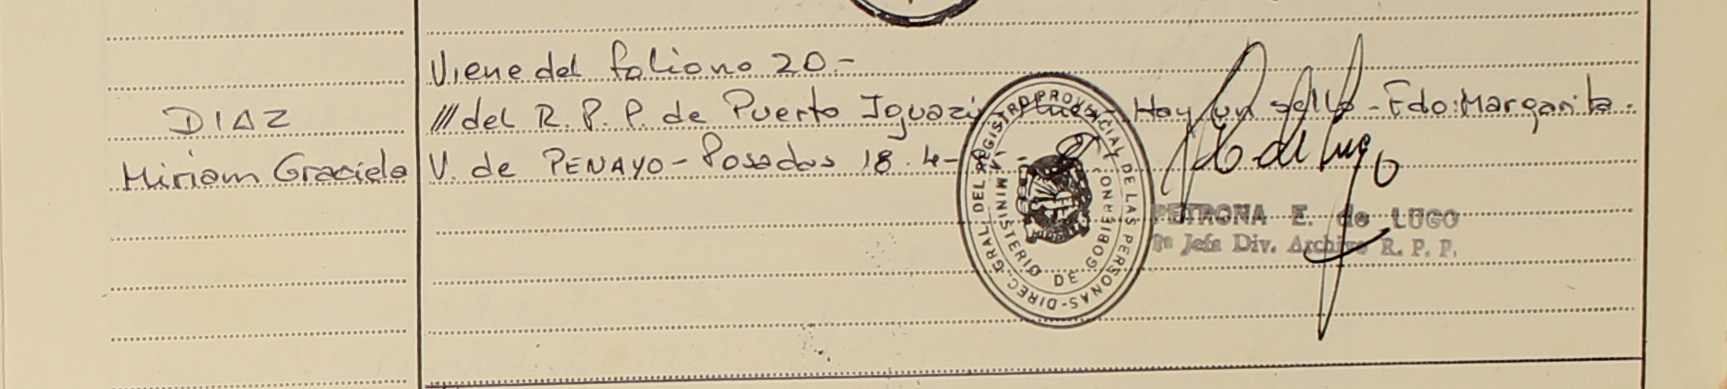 Viene del folio no 20.-
DIAZ
/// del R. P. P. de Puerto Iguazú - Hay un sello - Fdo: Margarita
Miriam Graciela
V. de PENAYO - Posadas 18-4-
DIREC. GRAL. DEL REGISTRO PROVINCIAL DE LAS PERSONAS
MINISTERIO DE GOBIERNO
MISIONES
PETRONA E. de LUGO
Jefa Div. Archivo R. P. P.